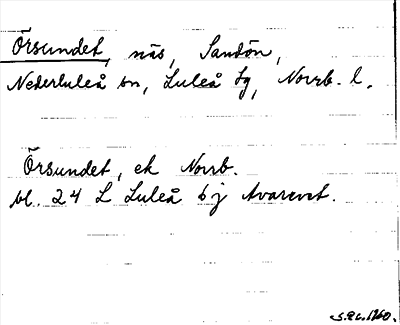 Örsundet, näs, Sandön,
Nederluleå sn, Luleå tg, Norrb. l.
Örsundet, ek Norrb.
bl. 24 L Luleå 6 j Avarevet.